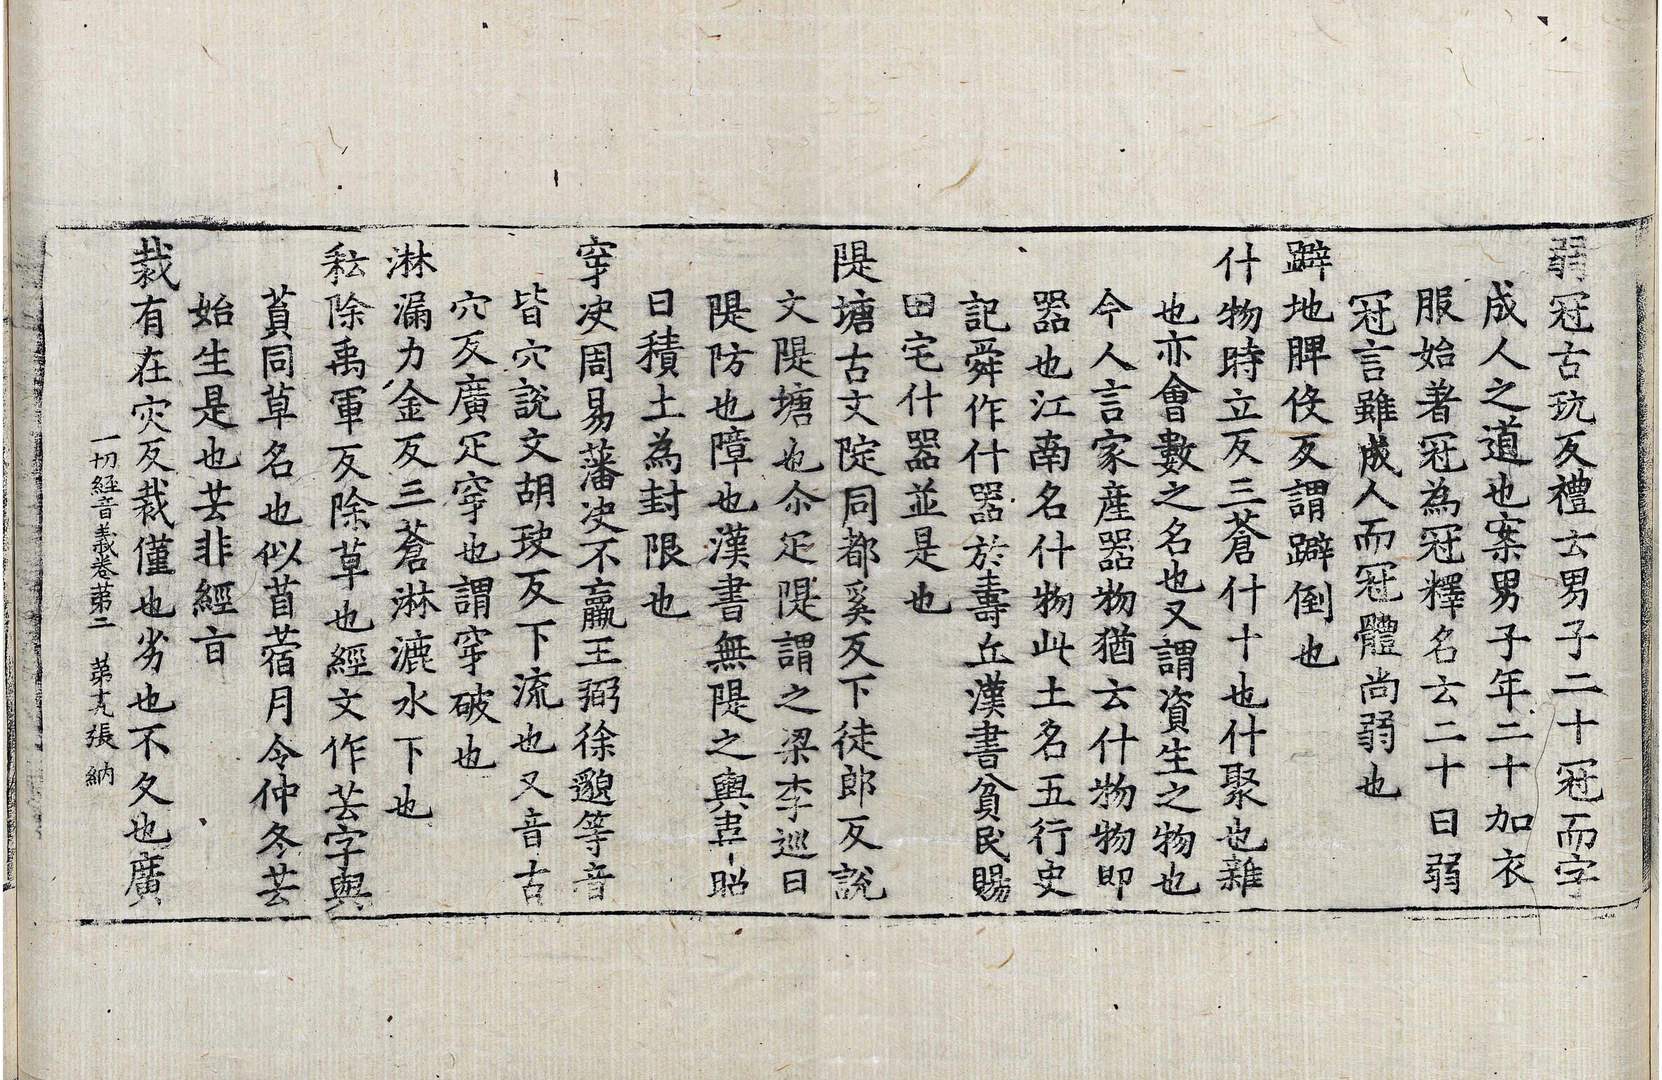 弱冠古玩反禮云男子二十冠而字
成人之道也案男子年二十加衣
服始著冠為冠釋名云二十曰弱
冠言雖成人而冠體尚弱也
躃地脾役反謂躃倒也
什物時立反三蒼什十也什聚也雜
也亦會數之名也又謂資生之物也
今人言家產器物猶云什物物即
器也江南名什物此土名五行史
記舜作什器於壽丘漢書貧民賜
田宅什器並是也
隄塘古文陡同都奚反下徒郎反說
文隄塘也尒疋隄謂之梁李巡曰
隄防也障也漢書無隄之輿韋昭
曰積土為封限也
穿决周易藩决不羸王弼徐邈等音
皆穴說文胡玦反下流也又音古
穴反廣疋穿也謂穿破也
淋漏力金反三蒼淋漉水下也
耘除禹軍反除草也經文作芸字與
蒷同草名也似苜蓿月令仲冬芸
始生是也芸非經旨
裁有在灾反裁僅也劣也不久也廣
一切經音義卷第二 第十九張 納